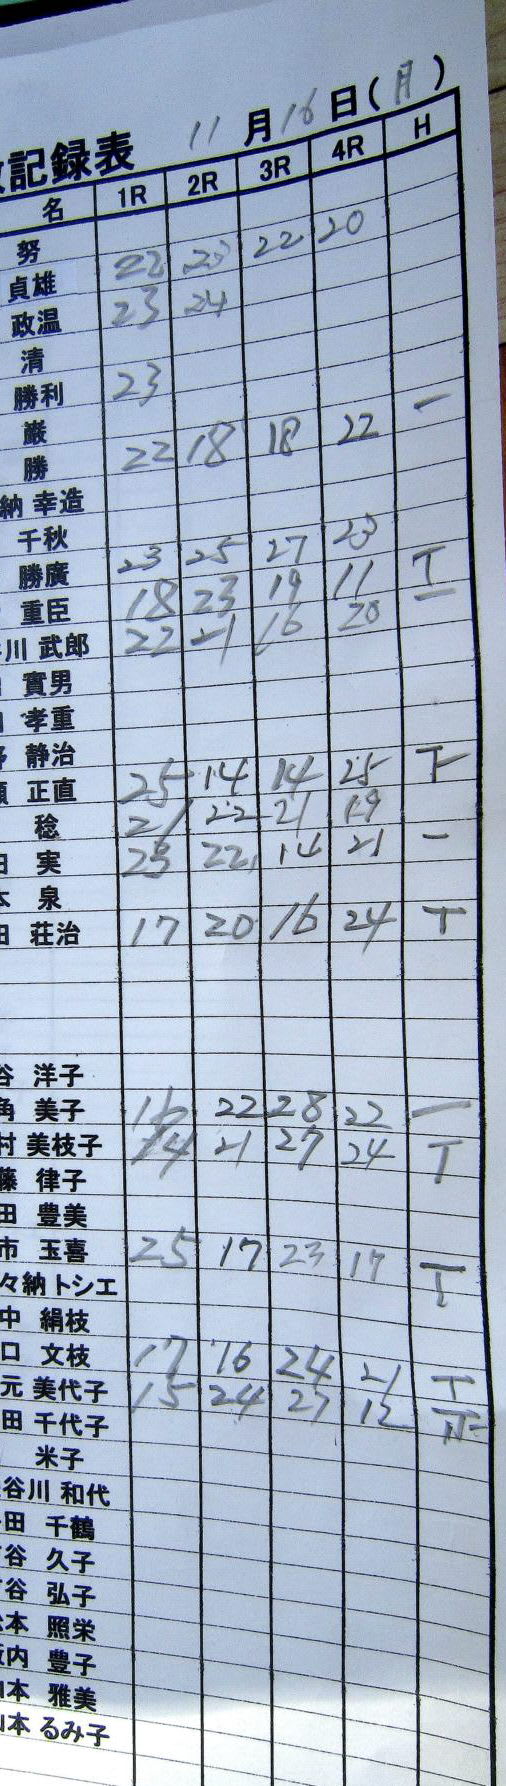 記録表 11月16日(月)
名 1R 2R 3R 4R H
努
貞雄 22 23 22 20
政温 23 24
清
勝利 23
巌
勝 22 18 18 22 一
納 幸造
千秋
勝廣 23 25 27 23
重臣 18 23 19 11 T
川 武郎 22 21 16 20 一
實男
孝重
静治
正直 25 14 14 25 T
稔 21 22 21 19
田 実 23 22 14 21 一
本 泉
田 荘治 17 20 16 24 T
谷 洋子
角 美子 16 22 28 22 一
村 美枝子 24 21 27 24 T
藤 律子
田 豊美
市 玉喜 25 17 23 17 T
々納 トシエ
中 絹枝
口 文枝 17 16 24 21 T
元 美代子 15 24 27 12
田 千代子
米子
谷川 和代
田 千鶴
谷 久子
谷 弘子
本 照栄
内 豊子
本 雅美
本 るみ子